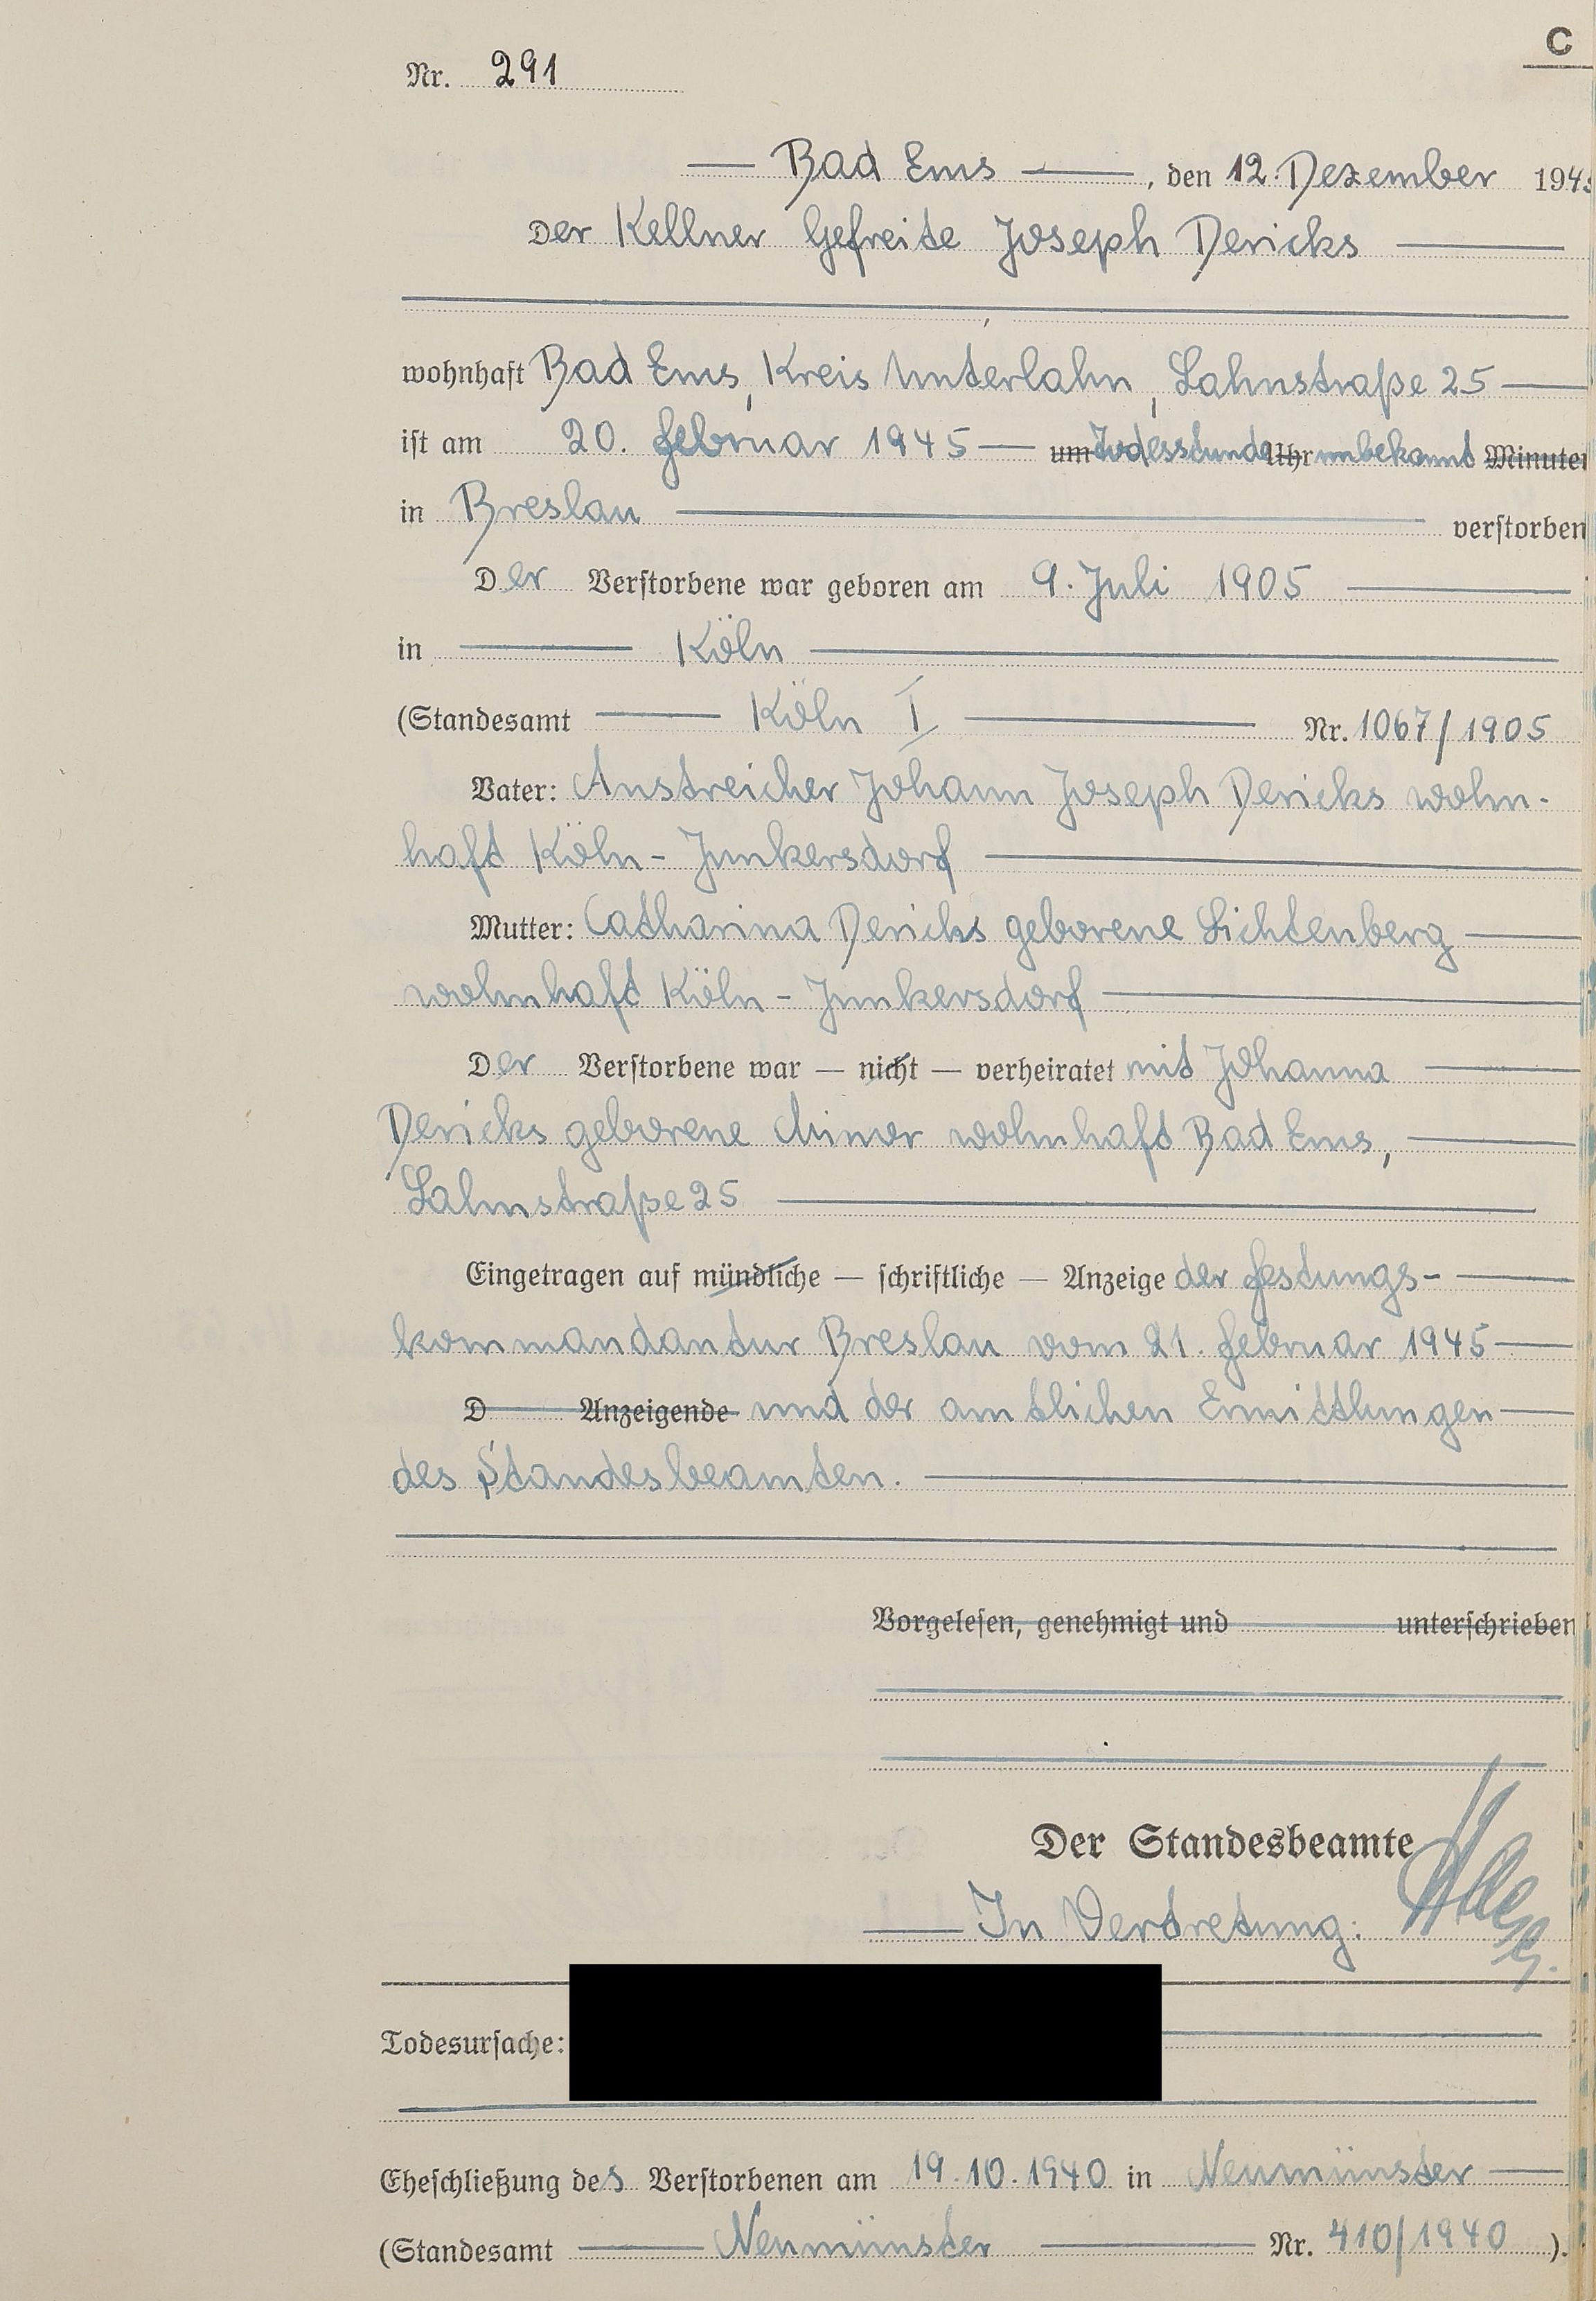 C
Nr. 291
Bad Ems, den 12. Dezember 194
Der Kellner Gefreite Joseph Dericks
wohnhaft Bad Ems, Kreis Unterlahn, Lahnstraße 25
ist am 20. Februar 1945 um Todesstunde Uhr unbekannt Minuten
in Breslau verstorben
Der Verstorbene war geboren am 9. Juli 1905
in Köln
(Standesamt Köln I Nr. 1067/1905
Vater: Anstreicher Johann Joseph Dericks wohn-
haft Köln-Junkersdorf
Mutter: Catharina Dericks geborene Lichtenberg
wohnhaft Köln-Junkersdorf
Der Verstorbene war — nicht — verheiratet mit Johanna
Dericks geborene wohnhaft Bad Ems,
Lahnstraße 25
Eingetragen auf mündliche — schriftliche — Anzeige der Festungs-
kommandantur Breslau vom 21. Februar 1945
D Anzeigende und der amtlichen Ermittlungen
des Standesbeamten.
Vorgelesen, genehmigt und unterschrieben
Der Standesbeamte
In Vertretung:
Todesursache:
Eheschließung des Verstorbenen am 19.10.1940 in Neumünster
(Standesamt Neumünster Nr. 410/1940).